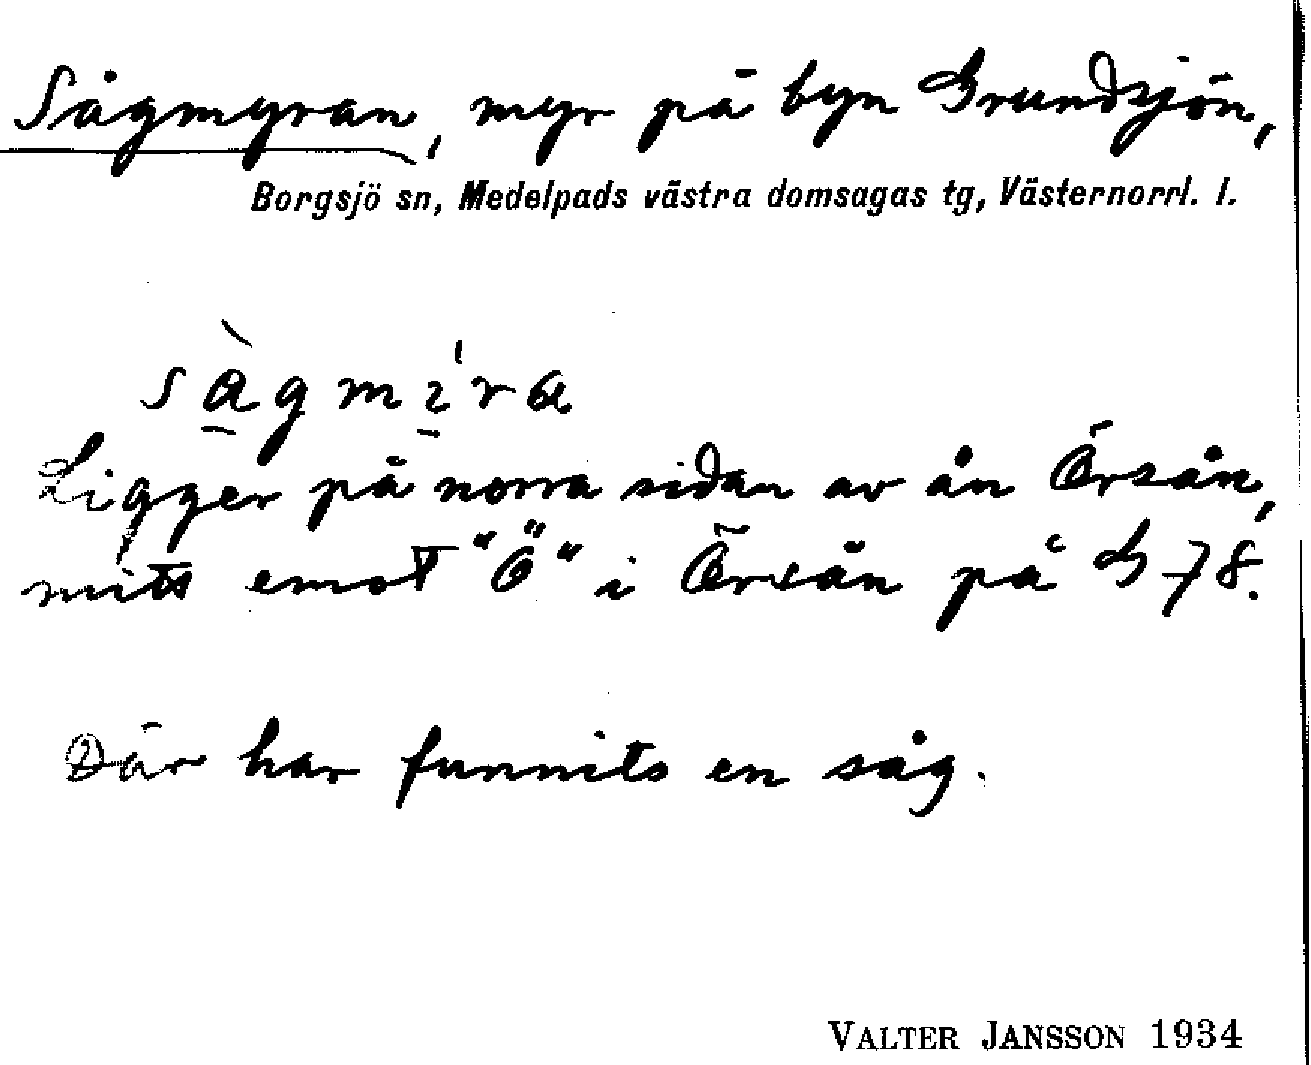 Sågmyran, myr på byn Grundsjön,
Borgsjö sn, Medelpads västra domsagas tg, Västernorrl. l.
sàgmı̍ra
Ligger på norra sidan av ån Örsån,
mitt emot "Ö" i Örsån på G 78.
Där har funnits en såg.
VALTER JANSSON 1934